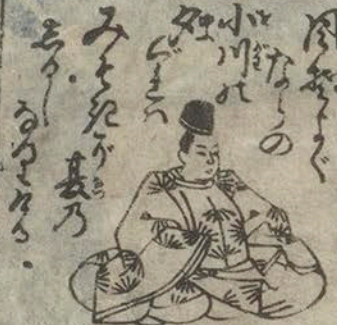 風そよぐ
ならの
小川の
夕
ぐれは
みそぎぞ
夏の
しるし
なりける